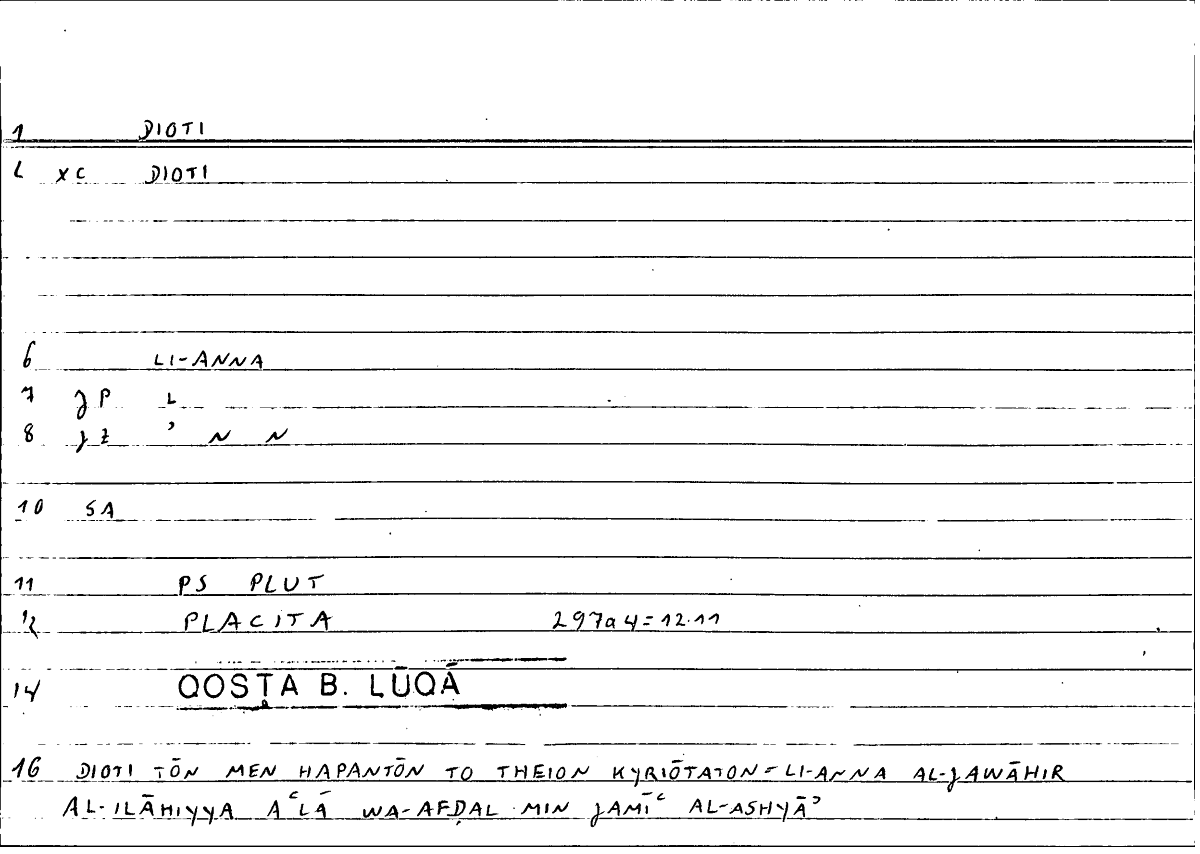 1 DIOTI
L XC DIOTI
6 LI-ANNA
7 JP L
8 JZ ʾ N N
10 SA
11 PS PLUT
12 PLACITA 297a4=12.11
14 QOSṬA B. LŪQĀ
16 DIOTI TŌN MEN HAPANTŌN TO THEION KYRIŌTATON = LI-ANNA AL-JAWĀHIR
AL-ILĀHIYYA AʿLĀ WA-AFḌAL MIN JAMĪʿ AL-ASHYĀʾ